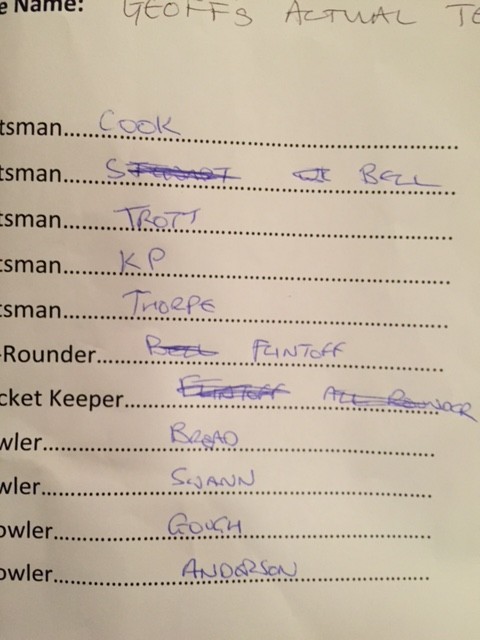 e Name: GEOFFS ACTUAL TE
tsman.....COOK
tsman..... BELL
tsman.....TROTT
tsman.....KP
tsman.....THORPE
-Rounder.....BELL FLINTOFF
cket Keeper.....FLINTOFF ALL ROUNDER
wler.....BROAD
wler.....SWANN
owler.....GOUGH
owler.....ANDERSON